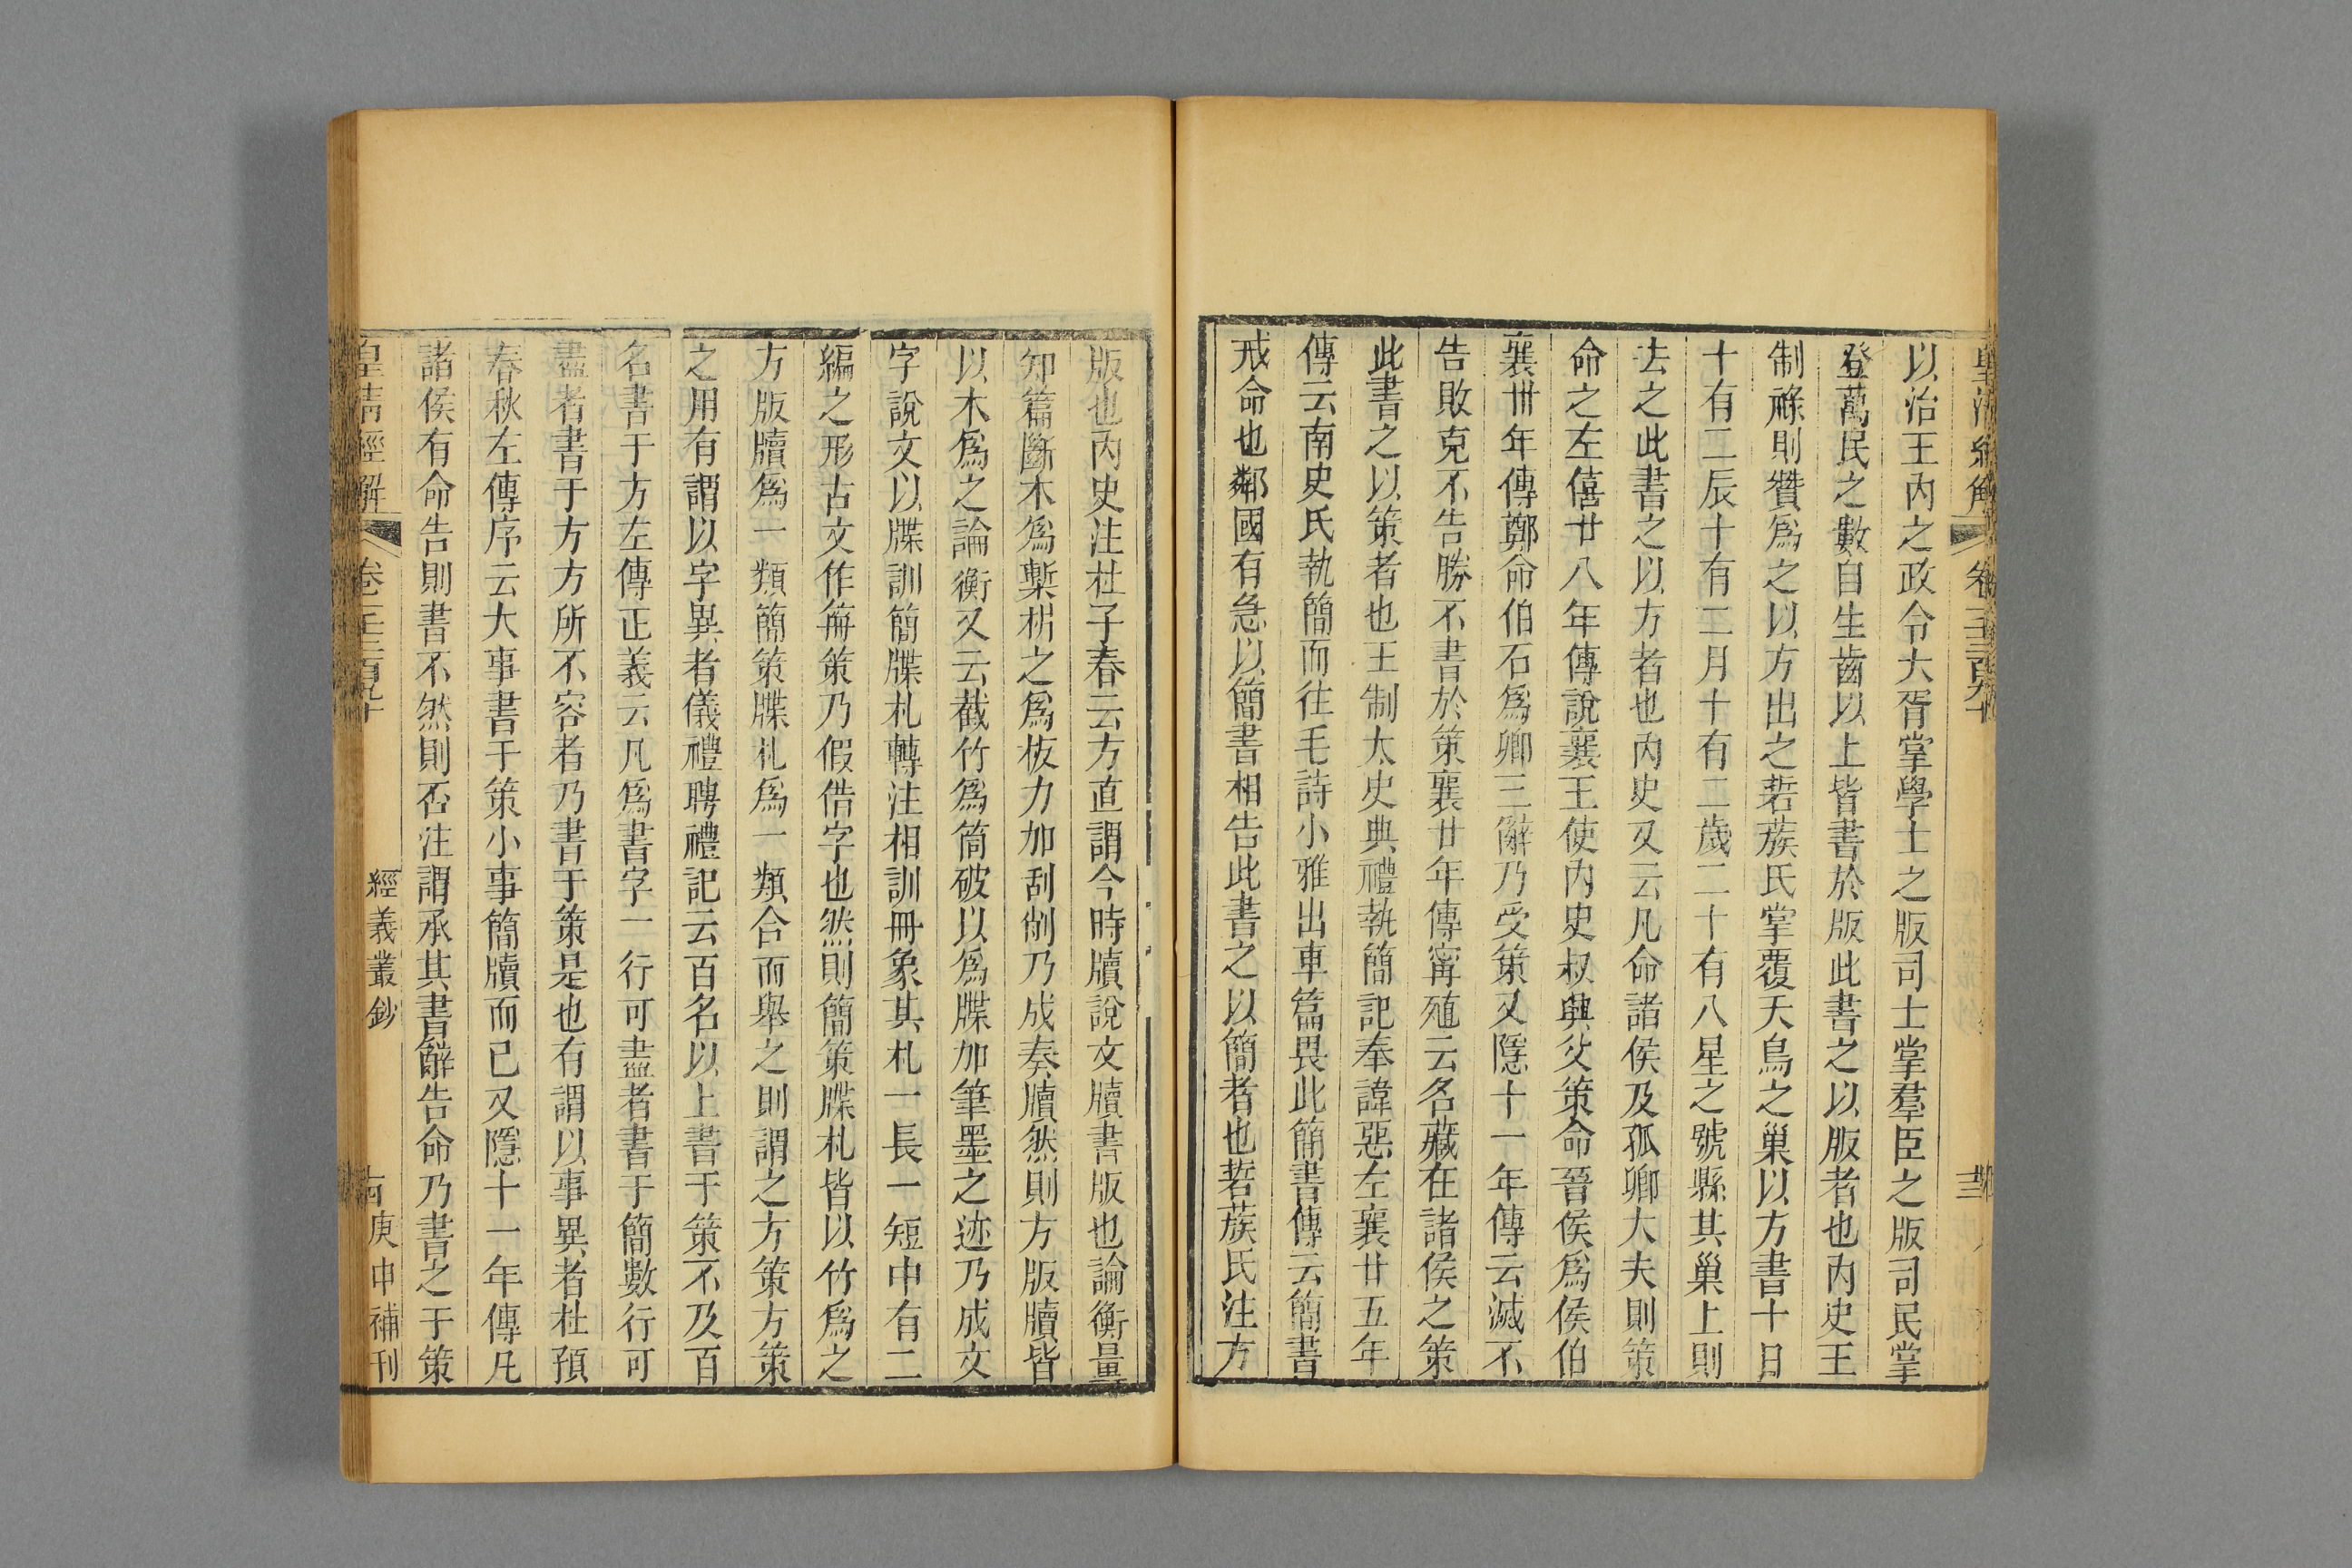 以治王內之政令大胥掌學士之版司士掌羣臣之版司民掌
登萬民之數自生齒以上皆書於版此書之以版者也內史王
制祿則贊爲之以方出之硩蔟氏掌覆夭鳥之巢以方書十日
十有二辰十有二月十有二歲二十有八星之號縣其巢上則
去之此書之以方者也內史又云凡命諸侯及孤卿大夫則策
命之左僖廿八年傳說襄王使內史叔興父策命晉侯爲侯伯
襄卅年傳鄭命伯石爲卿三辭乃受策又隱十一年傳云滅不
告敗克不告勝不書於策襄廿年傳寗殖云名藏在諸侯之策
此書之以策者也王制太史典禮執簡記奉諱惡左襄廿五年
傳云南史氏執簡而往毛詩小雅出車篇畏此簡書傳云簡書
戒命也鄰國有急以簡書相告此書之以簡者也硩蔟氏注方
版也內史注杜子春云方直謂今時牘說文牘書版也論衡量
知篇斷木爲槧㭊之爲板力加刮削乃成奏牘然則方版牘皆
以木爲之論衡又云截竹爲筒破以爲牒加筆墨之迹乃成文
字說文以牒訓簡牒札轉注相訓冊象其札一長一短中有二
編之形古文作𠕋策乃假借字也然則簡策牒札皆以竹爲之
方版牘爲一類簡策牒札爲一類合而舉之則謂之方策方策
之用有謂以字異者儀禮聘禮記云百名以上書于策不及百
名書于方左傳正義云凡爲書字一行可盡者書于簡數行可
盡者書于方方所不容者乃書于策是也有謂以事異者杜預
春秋左傳序云大事書于策小事簡牘而已又隱十一年傳凡
諸侯有命告則書不然則否注謂承其書辭告命乃書之于策
皇清經解
經義叢鈔
庚申補刊